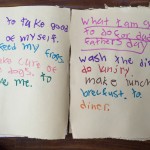 To take good
of myself.
feed my frogs
take care of
dogs. to
me. to
what I am go
to do for dad
fathers day
wash the di
do lunjry.
make lunch
breckfust. to
diner.